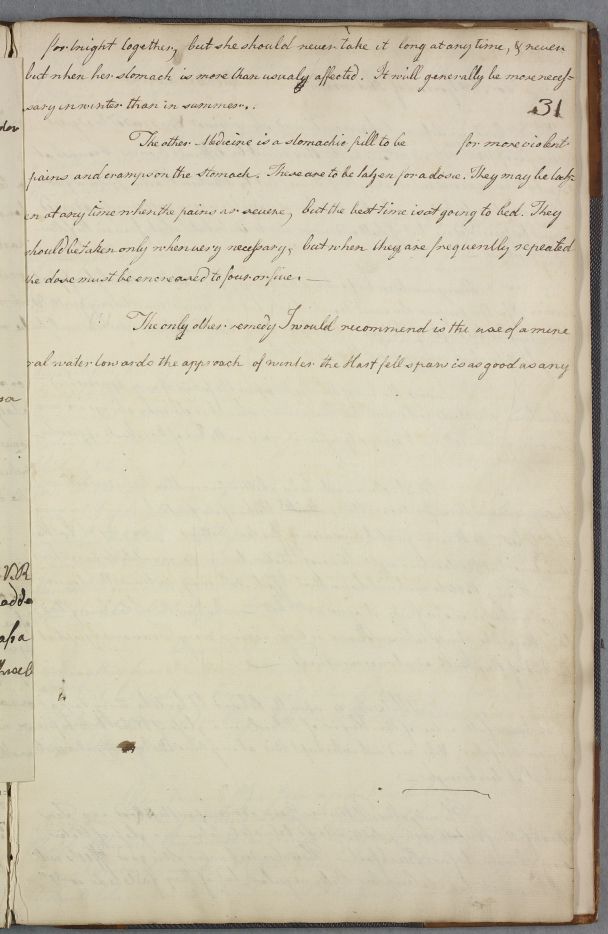 fortnight together, but she should never take it long at any time, & never
but when her stomach is more than usualy affected. It will generally be more neces-
sary in winter than in summer..
31
The other Medicine is a stomachic pill to be for more violent
pains and cramps on the stomach. These are to be taken for a dose. They may be tak-
en at any time when the pains ar severe, but the best time is at going to bed. They
should be taken only when very necessary, but when they are frequently repeated
the dose must be encreased to four or five. —
The only other remedy I would recommend is the use of a mine
ral water towards the approach of winter the Hartfell spaw is as good as any
VR
adde
assa